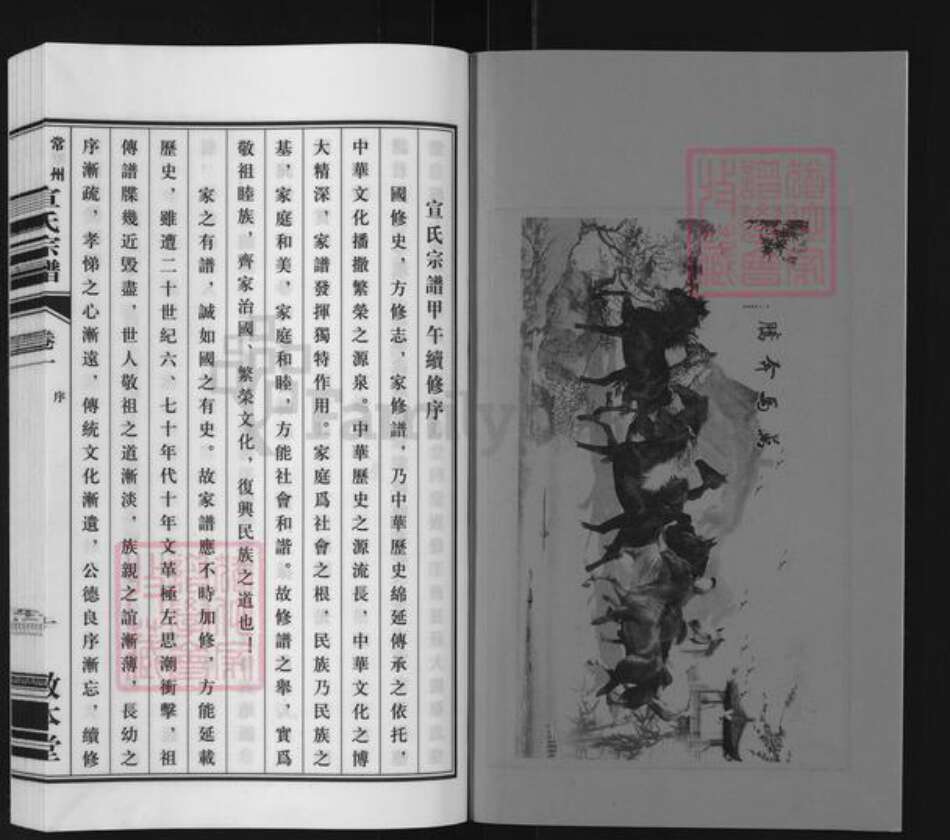 宣氏宗譜甲午續修序
國修史，方修志，家修譜，乃中華歷史綿延傳承之依托，
中華文化播撒繁榮之源泉。中華歷史之源流長，中華文化之博
大精深，家譜發揮獨特作用。家庭爲社會之根，民族乃民族之
基，家庭和美，家庭和睦，方能社會和諧。故修譜之舉，實爲
敬祖睦族，齊家治國、繁榮文化，復興民族之道也！
家之有譜，誠如國之有史。故家譜應不時加修，方能延載
歷史，雖遭二十世紀六、七十年代十年文革極左思潮衝擊，祖
傳譜牒幾近毀盡，世人敬祖之道漸淡，族親之誼漸薄，長幼之
序漸疏，孝悌之心漸遠，傳統文化漸遺，公德良序漸忘，續修
常州宣氏宗譜
卷一
序
一
敦本堂
萬馬奔騰